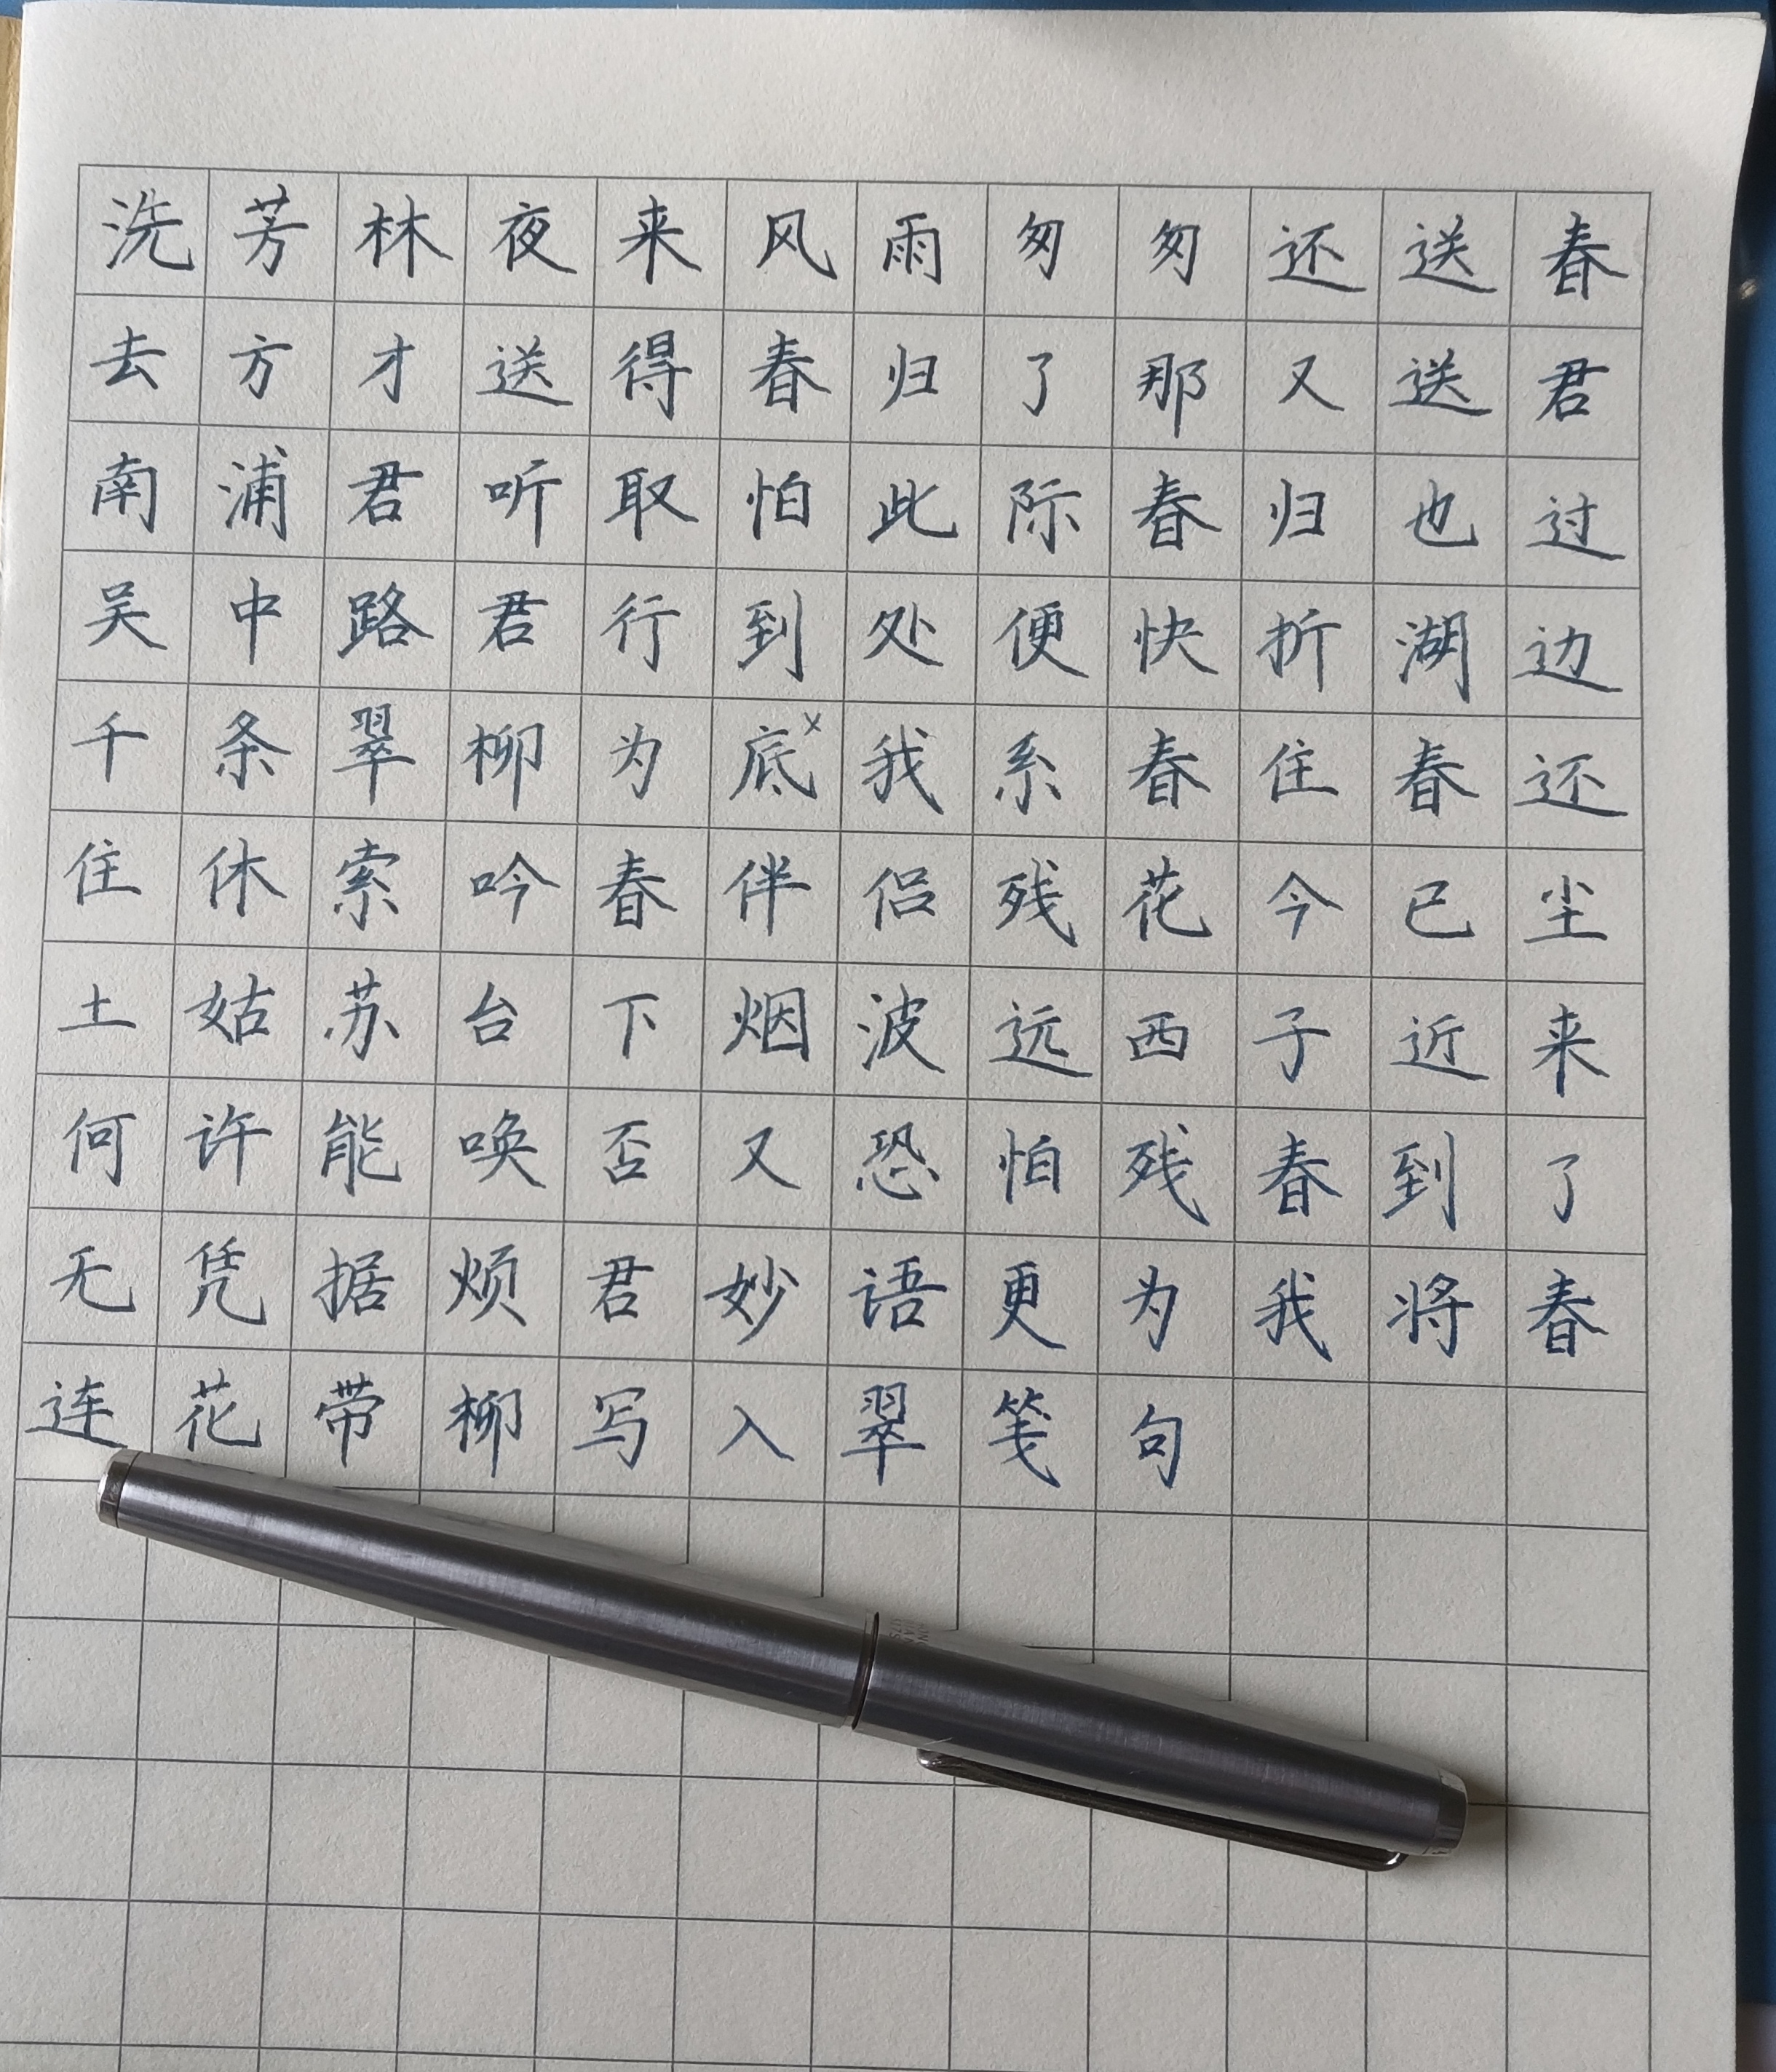 洗芳林夜来风雨匆匆还送春
去方才送得春归了那又送君
南浦君听取怕此际春归也过
吴中路君行到处便快折湖边
千条翠柳为底我系春住春还
住休索吟春伴侣残花今已尘
土姑苏台下烟波远西子近来
何许能唤否又恐怕残春到了
无凭据烦君妙语更为我将春
连花带柳写入翠笺句